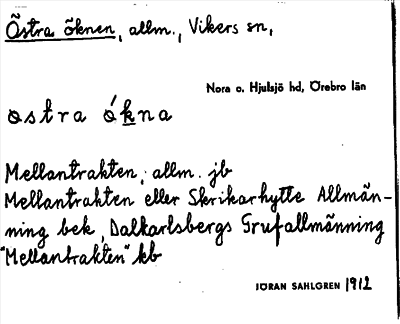 Östra öknen, allm., Vikers sn,
Nora o. Hjulsjö hd, Örebro län
ostra ókna
Mellantrakten, allm. jb
Mellantrakten eller Skrikarhytte Allmän-
ning bek, Dalkarlsbergs Grufallmänning
"Mellantrakten" kb
JÖRAN SAHLGREN 1912